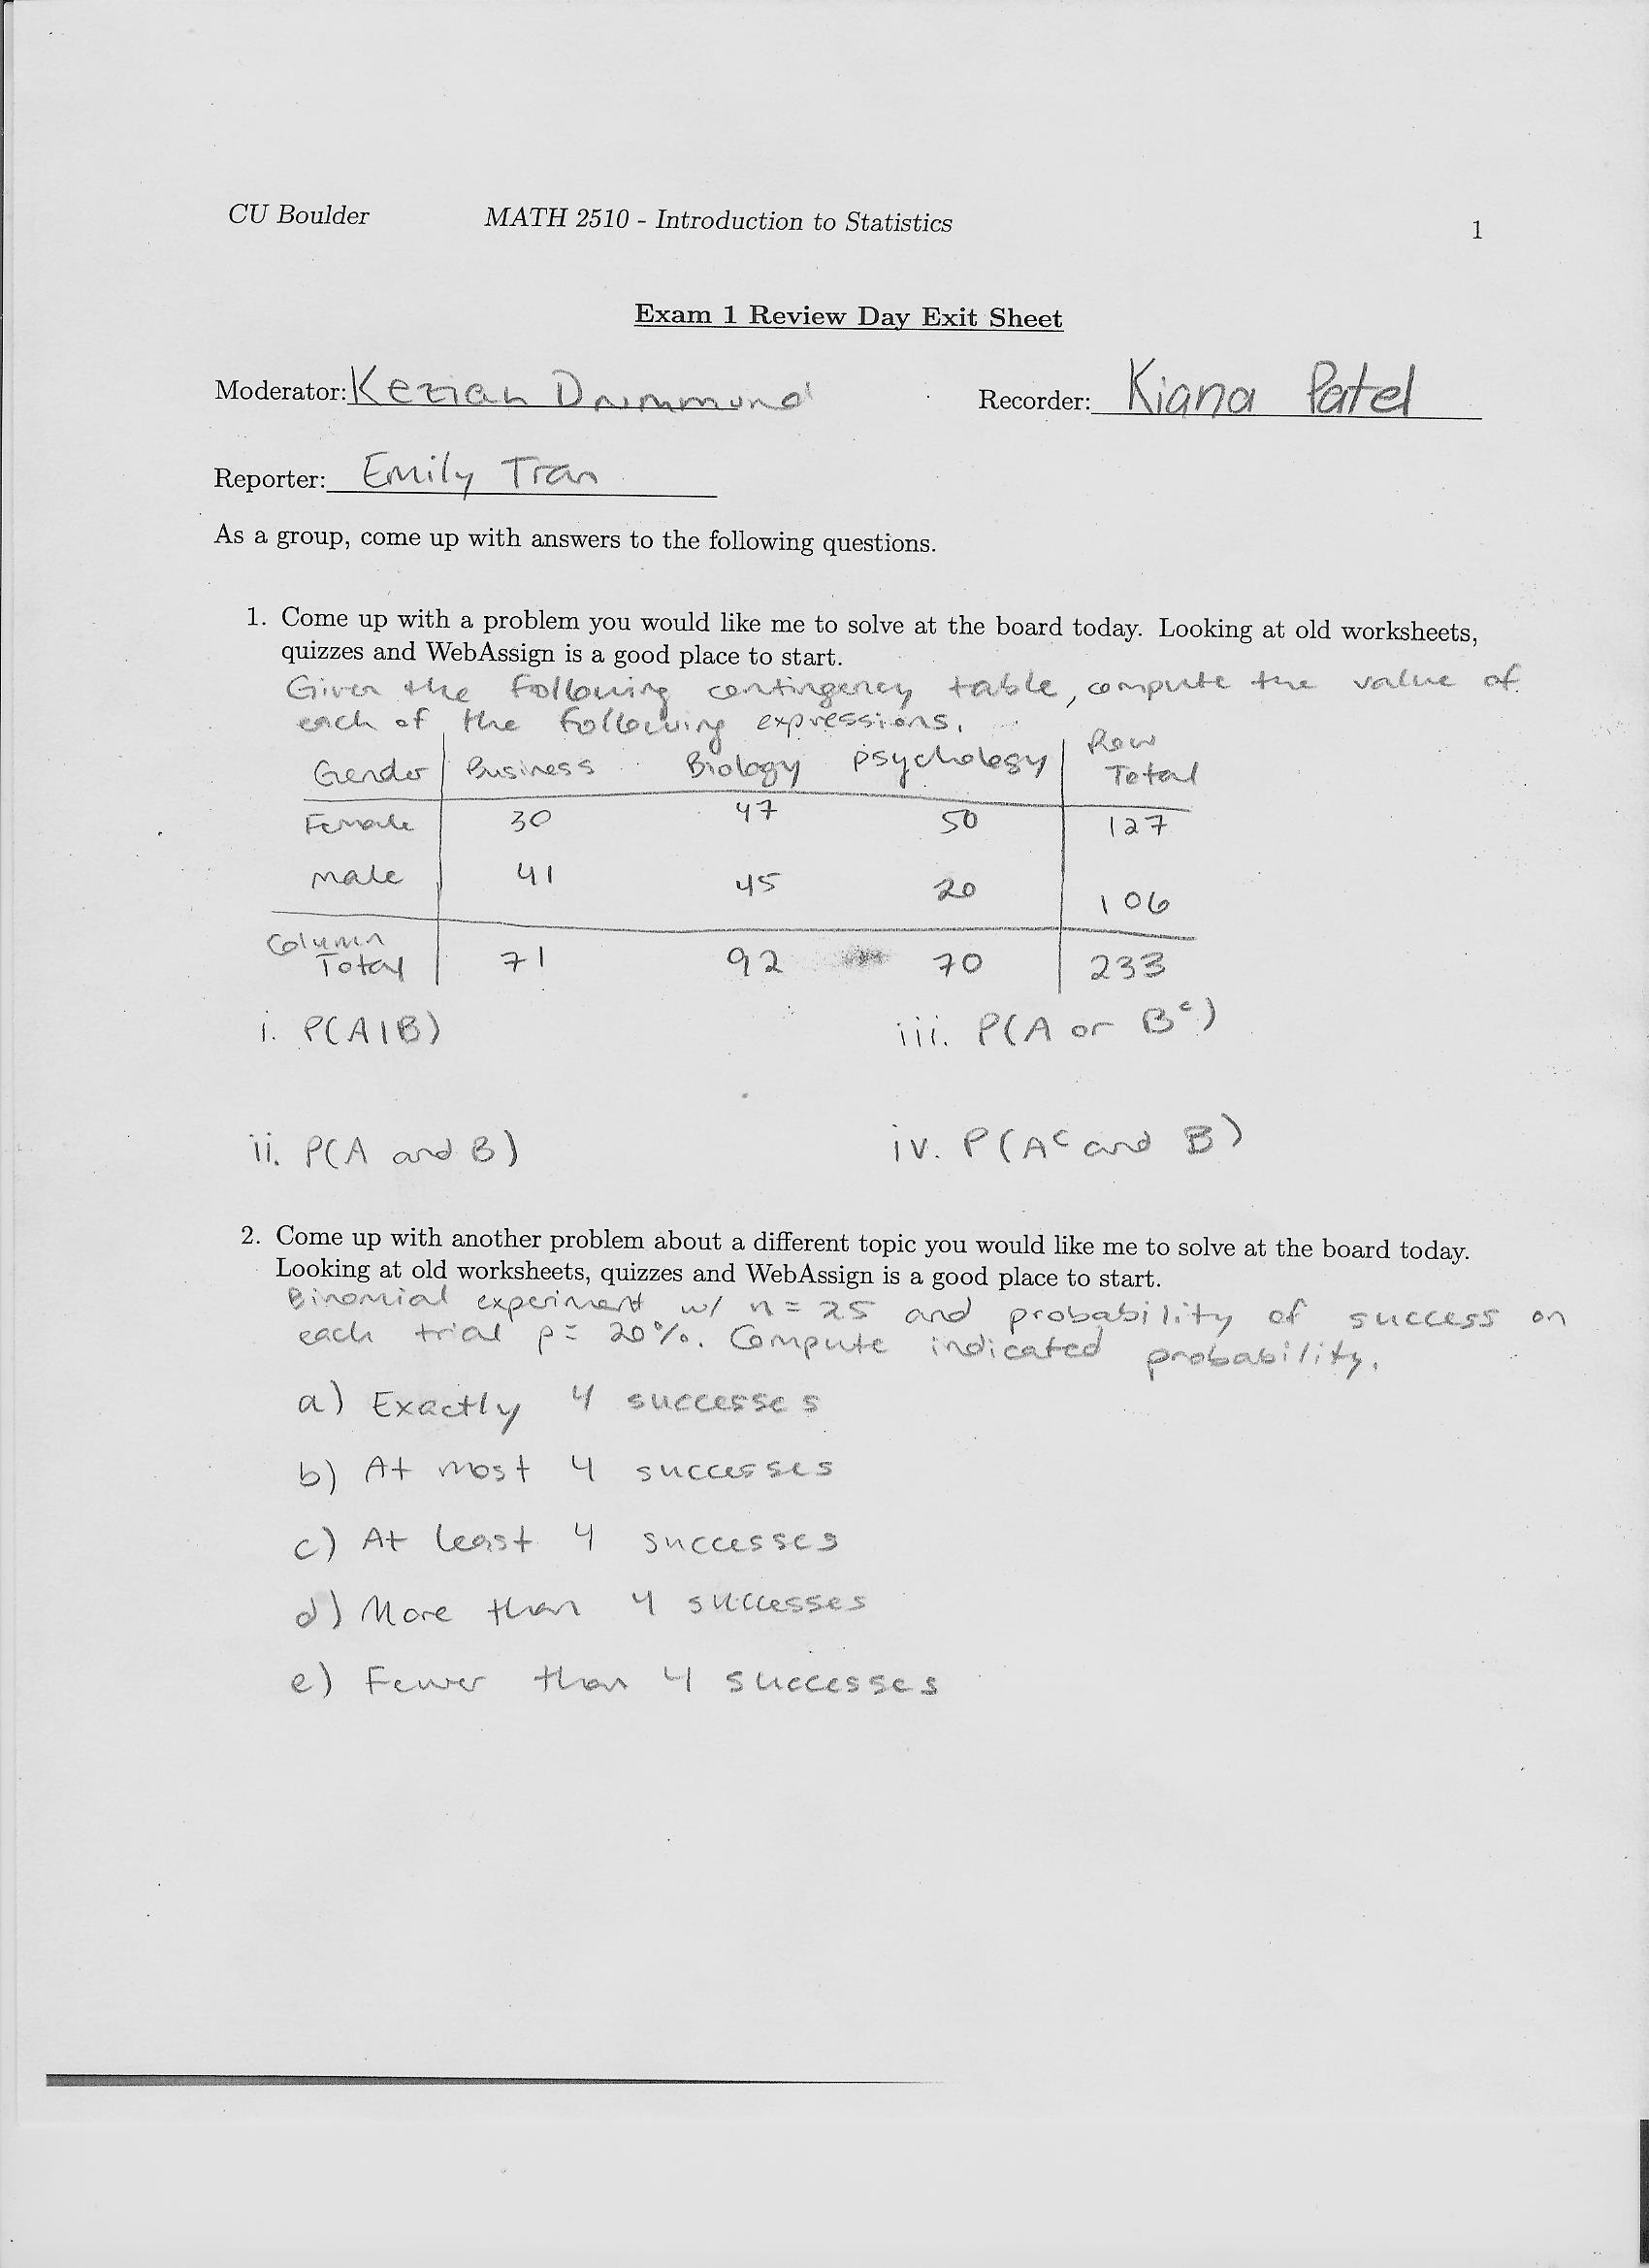 CU Boulder MATH 2510 - Introduction to Statistics 1
Exam 1 Review Day Exit Sheet
Moderator: Keziah Drummond Recorder: Kiana Patel
Reporter: Emily Tran
As a group, come up with answers to the following questions.
1. Come up with a problem you would like me to solve at the board today. Looking at old worksheets,
quizzes and WebAssign is a good place to start.
Given the following contingency table, compute the value of
each of the following expressions.
Gender Business Biology psychology Row Total
Female 30 47 50 127
male 41 45 20 106
Column Total 71 92 70 233
i. P(A|B) iii. P(A or Bᶜ)
ii. P(A and B) iv. P(Aᶜ and B)
2. Come up with another problem about a different topic you would like me to solve at the board today.
Looking at old worksheets, quizzes and WebAssign is a good place to start.
Binomial experiment w/ n = 25 and probability of success on
each trial p = 20%. Compute indicated probability.
a) Exactly 4 successes
b) At most 4 successes
c) At least 4 successes
d) More than 4 successes
e) Fewer than 4 successes